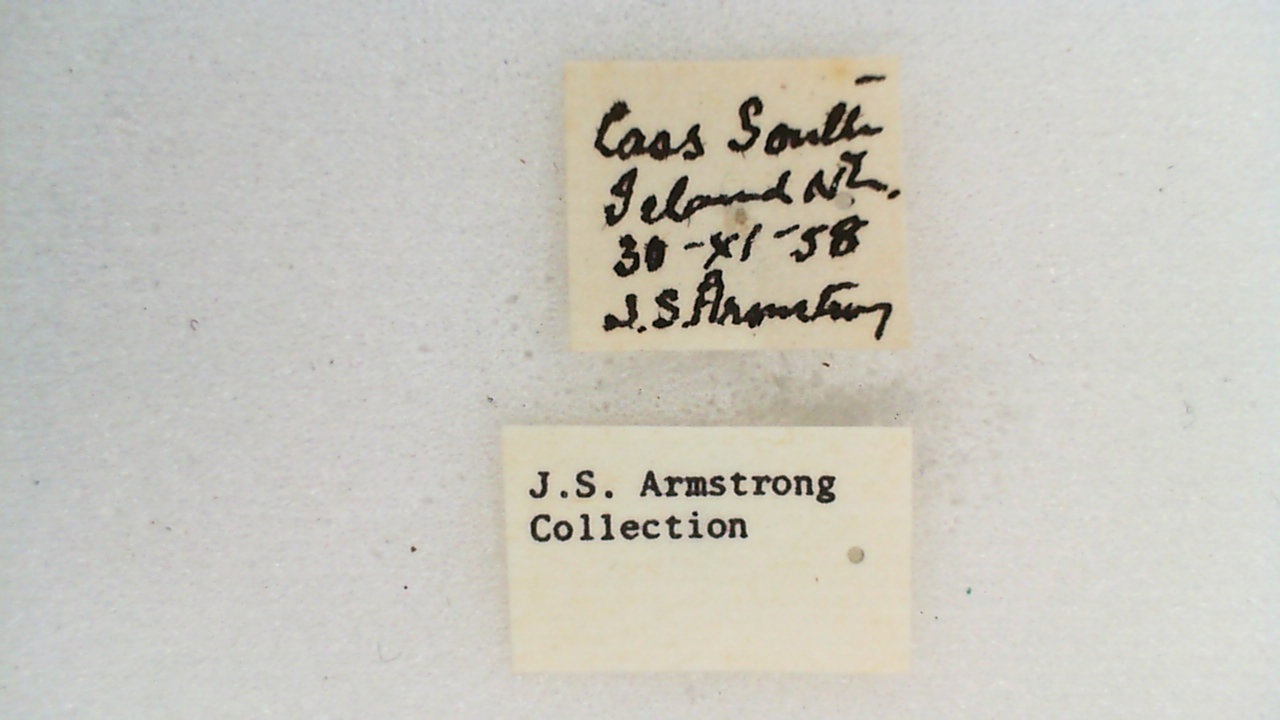 Cass South
Island NZ.
30-XI-58
J.S. Armstrong
J.S. Armstrong
Collection